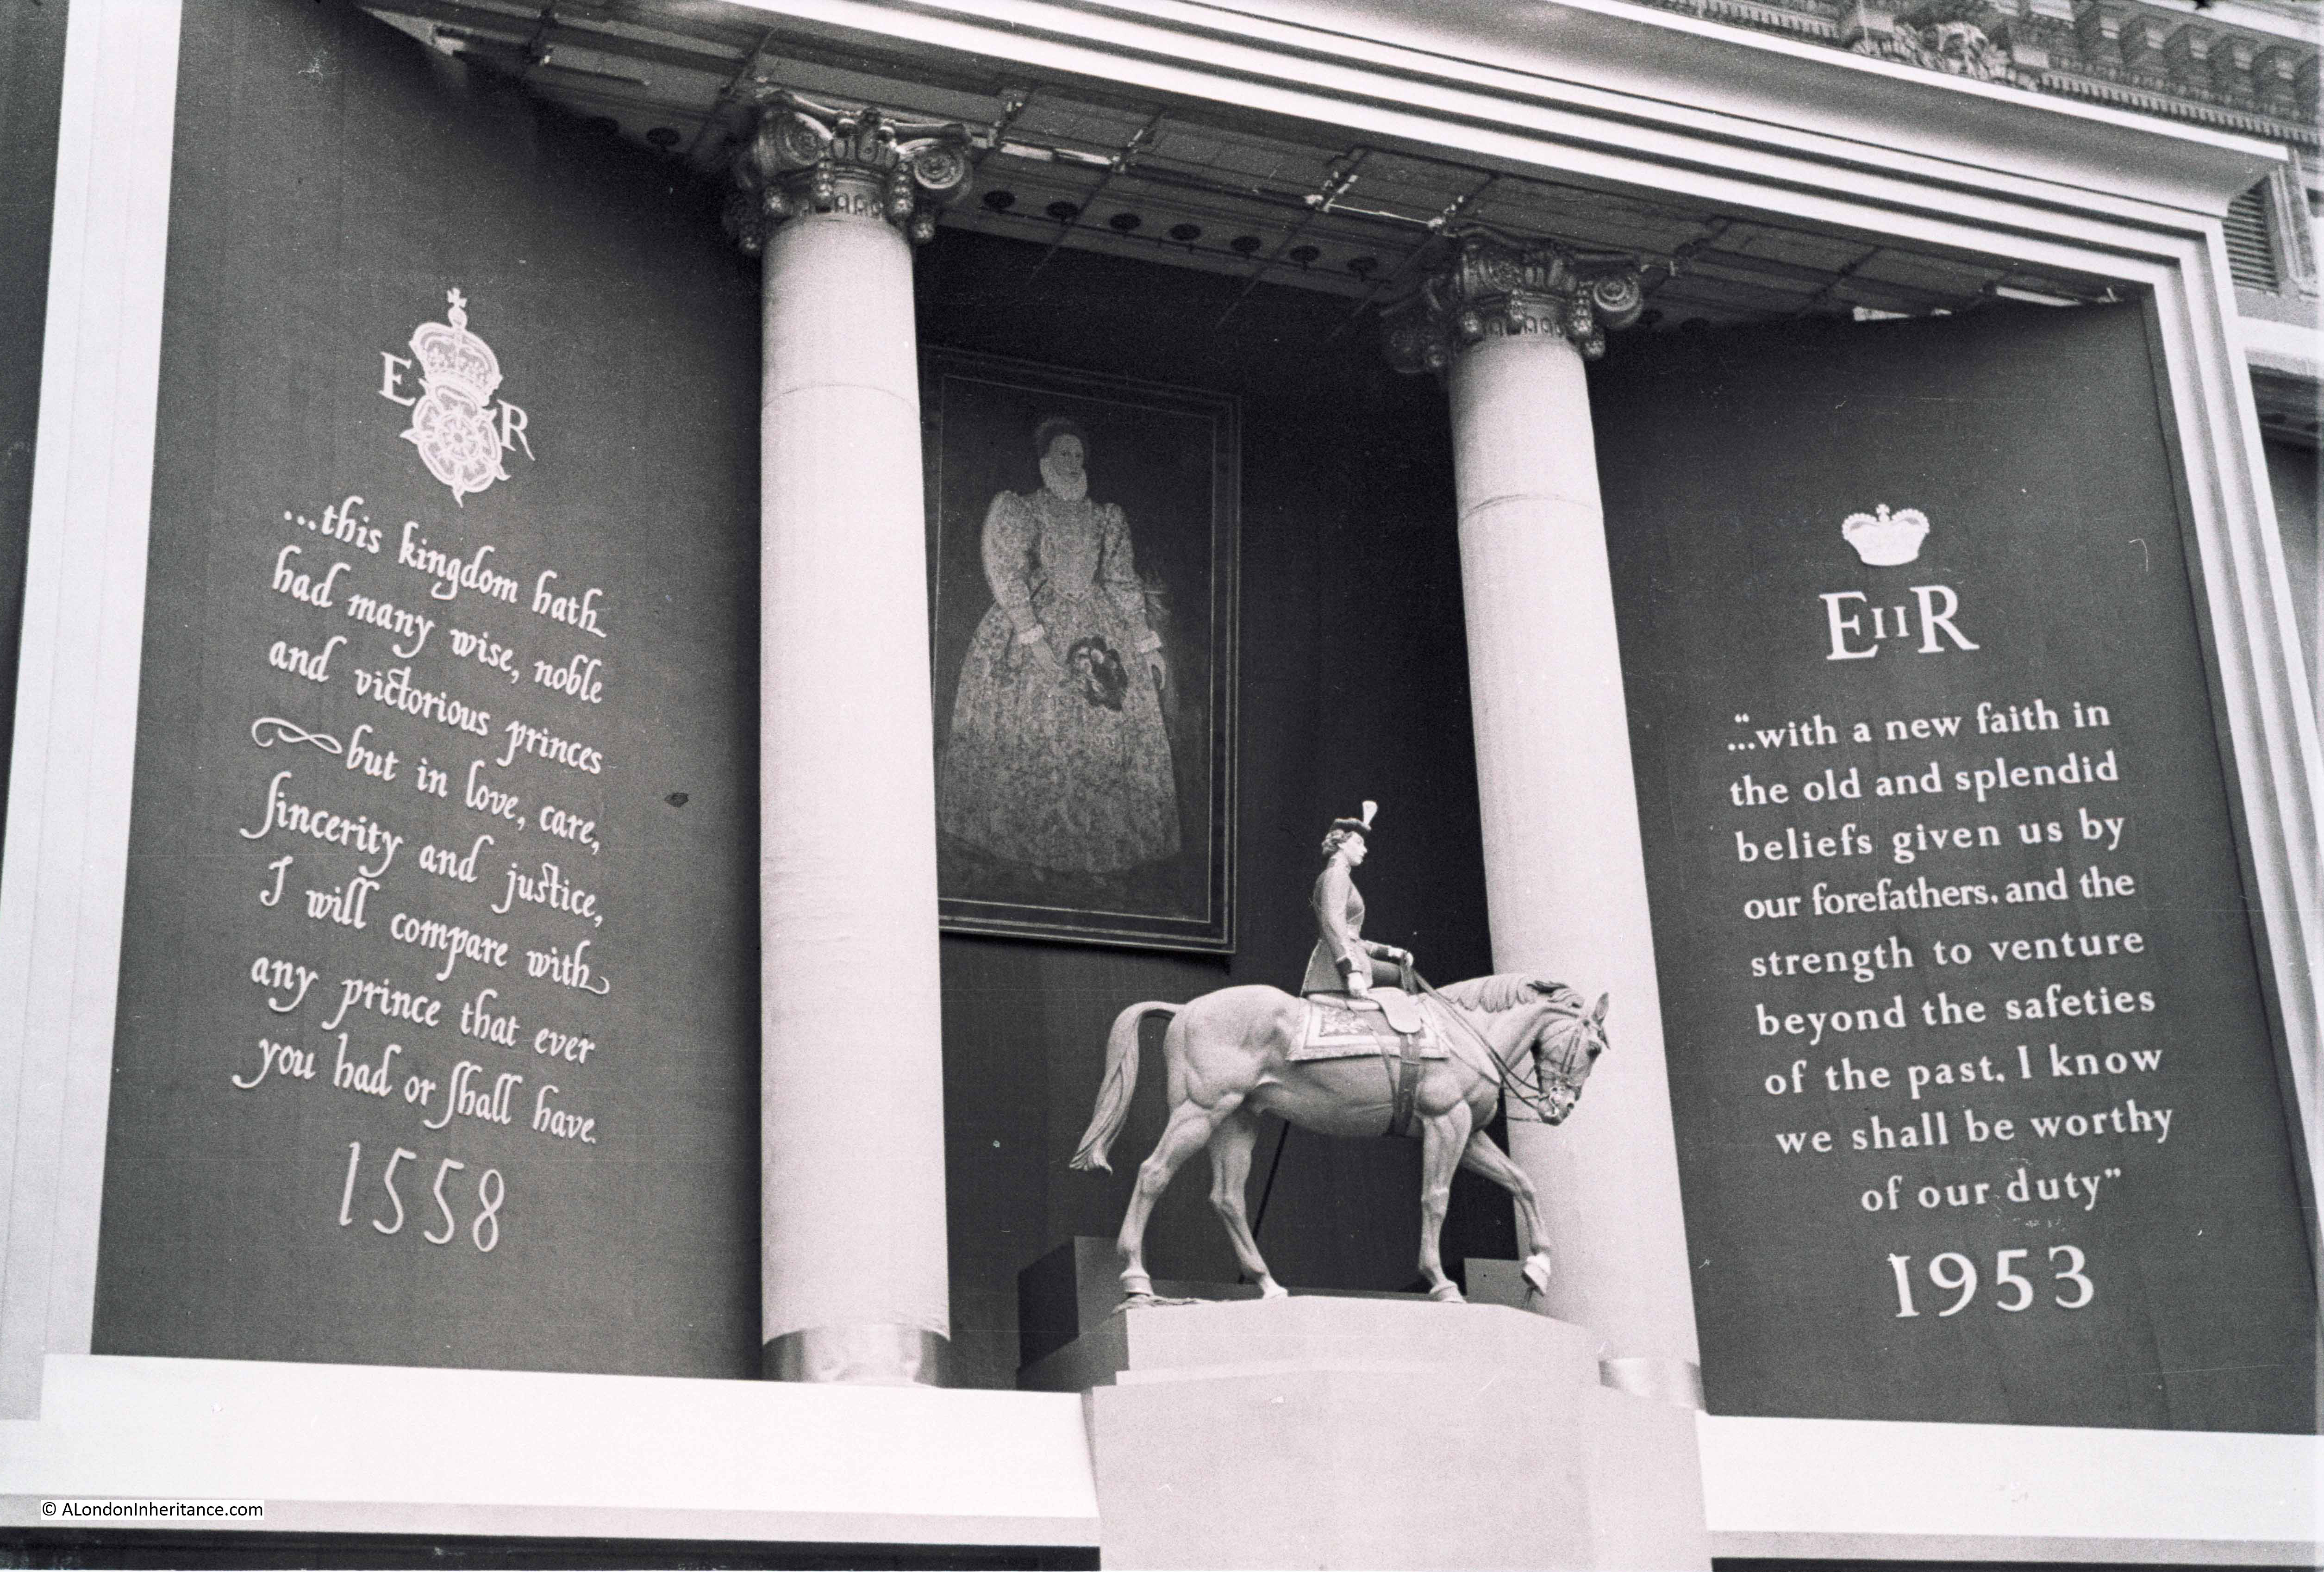 E R
...this kingdom hath
had many wise, noble
and victorious princes
but in love, care,
ſincerity and justice,
I will compare with
any prince that ever
you had or ſhall have.
1558
EIIR
“...with a new faith in
the old and splendid
beliefs given us by
our forefathers, and the
strength to venture
beyond the safeties
of the past. I know
we shall be worthy
of our duty”
1953
© ALondonInheritance.com